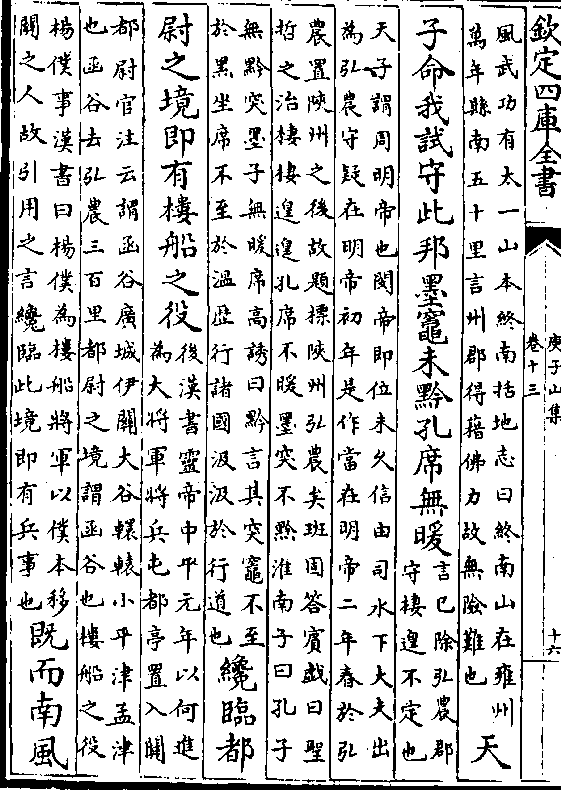 欽定四庫全書
庾子山集
卷十三
十六
風武功有太一山本終南括地志曰終南山在雍州
萬年縣南五十里言州郡得藉佛力故無險難也
天
子命我試守此邦墨竈未黔孔席無暖
言已除弘農郡
守棲遑不定也
天子謂周明帝也閔帝即位未久信由司水下大夫出
為弘農守疑在明帝初年是作當在明帝二年春於弘
農置陜州之後故題摽陜州弘農矣班固答賓戲曰聖
哲之治棲棲遑遑孔席不暖墨突不黔淮南子曰孔子
無黔突墨子無暖席高誘曰黔言其突竈不至
於黑坐席不至於温歴行諸國汲汲於行道也
纔臨都
尉之境即有樓船之役
後漢書靈帝中平元年以何進
為大將軍將兵屯都亭置入闗
都尉官注云謂函谷廣城伊闗大谷轘轅小平津孟津
也函谷去弘農三百里都尉之境謂函谷也樓船之役
楊僕事漢書曰楊僕為樓船將軍以僕本移
闗之人故引用之言纔臨此境即有兵事也
既而南風